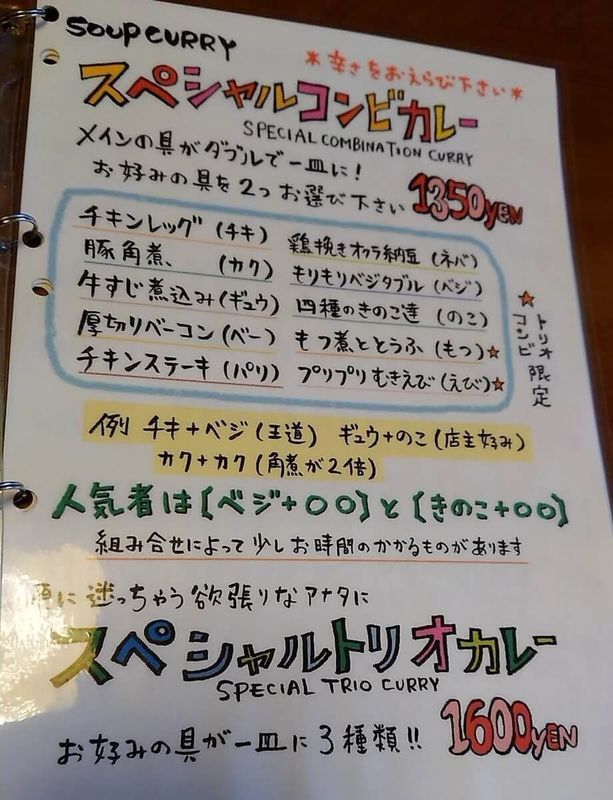 SOUP CURRY
＊辛さをおえらび下さい＊
スペシャルコンビカレー
SPECIAL COMBINATION CURRY
メインの具がダブルで一皿に！
お好みの具を2つお選び下さい 1350YEN
チキンレッグ (チキ)
豚角煮、 (カク)
牛すじ煮込み (ギュウ)
厚切りベーコン (ベー)
チキンステーキ (パリ)
鶏挽きオクラ納豆 (ネバ)
もりもりベジタブル (ベジ)
四種のきのこ達 (のこ)
もつ煮ととうふ (もつ)★
プリプリむきえび (えび)★
★トリオ限定
コンビ
例 チキ＋ベジ (王道) ギュウ＋のこ (店主好み)
カク＋カク (角煮が2倍)
人気者は〔ベジ＋○○〕と〔きのこ＋○○〕
組み合せによって少しお時間のかかるものがあります
に迷っちゃう欲張りなアナタに
スペシャルトリオカレー
SPECIAL TRIO CURRY
お好みの具が一皿に3種類!! 1600YEN